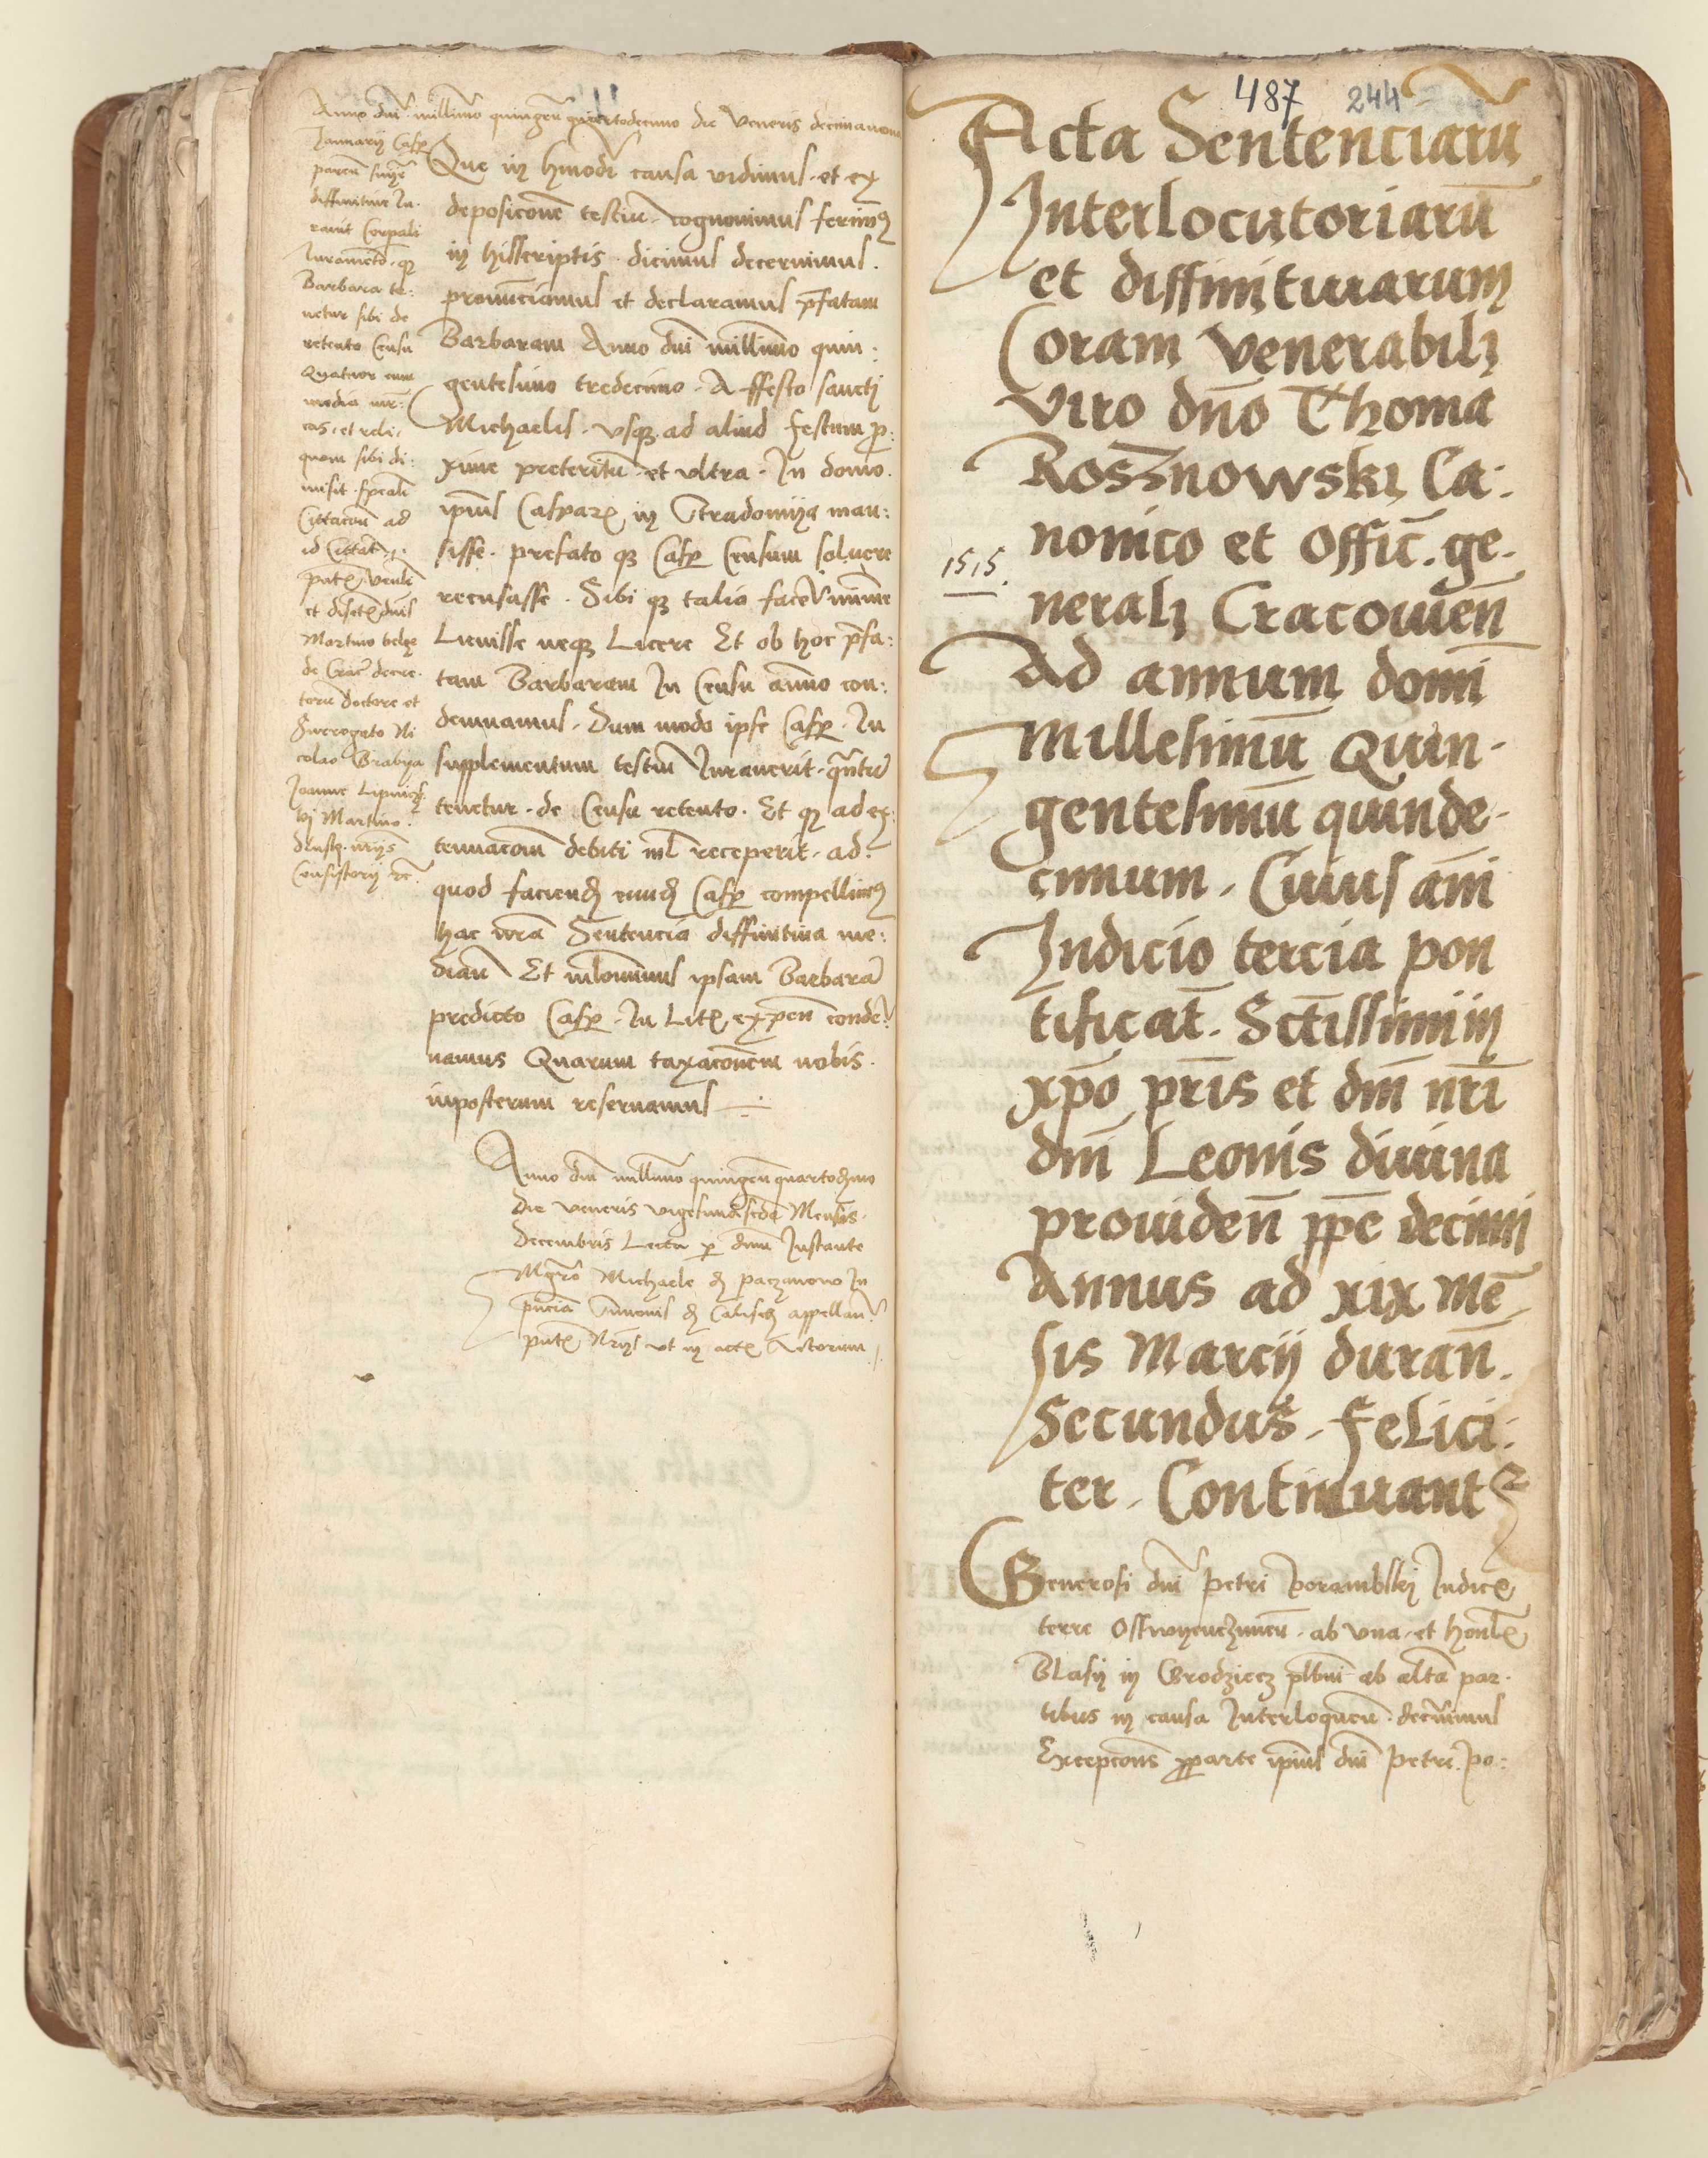 Anno dni millimo quingen quartodecimo die Veneris decimanona
Januarij Casp
parem suye
diffinitive Ju-
ravit Corpali
Juramento q
Barbara te:
netur sibi de
retento Censu
Quatuor cum
media mr:
cas. et reli:
quam sibi di:
misit
Cittacom ad
id
et
Martino
de Crac decre-
toru doctore et
Surrogato Ni
colao Grabya
Joanne
Martino
Consistorij
Que in hmodi causa vidimus et ex
deposicone testiu cognovimus ferimus
in hijsscriptis dicimus decernimus.
pronunciamus et declaramus pfatam
Barbaram Anno dni millimo quin:
gentesimo tredecimo. A ffesto sancti
Michaelis. vsq ad aliud festum p:
xime preteritu et vltra. In domo.
ipius Caspar in Stradomija man:
sisse. prefato q Casp Censum soluere
recusasse. Sibi q talia face minime
Licuisse neq Licere Et ob hoc pfa:
tam Barbaram In Censu anno con:
demnamus. Dum modo ipse Casp. In
supplementum testiu Juraverit. qntu
tenetur. de Censu retento. Et q ad ex:
tenuacom debiti nil receperit. ad:
quod faciend eund Casp compellim
hac nra Sentencia diffinitiva me:
dian Et nlominus ipsam Barbara
predicto Casp. In Lit expen conde:
namus Quarum taxaconem nobis.
inposterum reservamus
Anno dni millimo quingen quartodmo
die veneris vigesimaseda Mensis.
Decembris Lecta p dnm Instante
Mgro Michaele d paczanow In
pncia Simonis d Calisch appellan
pnt Nrijs vt in act Actorum
487 244
Acta Sentenciarū
Interlocutoriarū
et diffinitiuarum
Coram Venerabili
Viro dn̄o Thoma
Rosznowski Ca:
nonico et Offic̄. ge-
1515.
nerali Cracouien̄
Ad annum domī
Millesimū Quin-
gentesimū quinde-
cimum. Cuius an̄i
Indicio tercia pon
tificat̄. Sct̄issimi in
xp̄o pr̄is et dn̄i nr̄i
dn̄i Leonis diuina
prouiden̄ pp̄e decimi
Annus ad xix Mē-
sis Marcij duran̄.
Secundus. Felici:
ter. Continuant
Generosi dni Petri Porambskj Judic
terre Osswyenczimen. ab vna. et honl
Blasij in Grodziecz plbni ab alta par.
tibus in causa Interloquen. decrevimus
Excepcons pparte ipius dni Petri. Po: